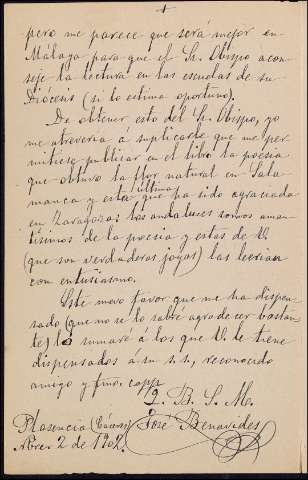 pero me parece que será mejor en
Málaga para que el Sr. Obispo acon
seje la lectura en las escuelas de su
Diócesis (si lo estima oportuno).
De obtener esto del Sr. Obispo, yo
me atrevería á suplicarle que me per
mitiese publicar en el libro la poesía
que obtuvo la flor natural en Sala
manca y esta última que ha sido agraciada
en Zaragoza: los andaluces somos aman
tísimos de la poesía y estas de V.
(que son verdaderas joyas) las leerían
con entusiasmo.
Este nuevo favor que me ha dispen
sado (que no se lo sabré agradecer bastan
te) lo sumaré á los que V. le tiene
dispensados á su s.s., reconocido
amigo y
Q. B. S. M.
José Benavides
Plasencia (Cáceres)
Nbre. 2 de 1902.